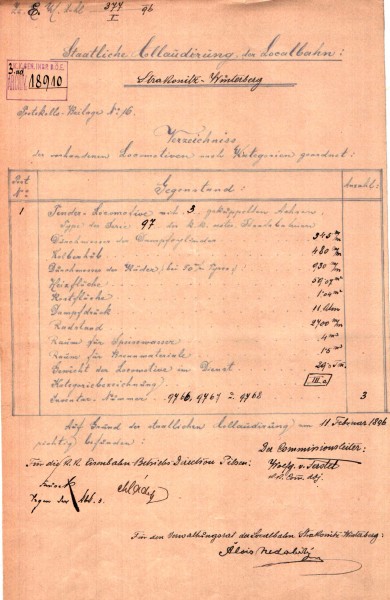 377
I 96
Staatliche Collaudirung der Localbahn:
Strakonitz-Winterberg
3 ad
18910
Protokolls-Beilage No 16.
Verzeichniss
der vorhandenen Locomotiven nach Kategorien geordnet:
Post No. Gegenstand: Anzahl:
1 Tender-Locomotive mit 3, gekuppelten Achsen,
Type der Serie 97 der K.K. österr. Staatsbahnen
Durchmesser der Dampfcylinder 345 m/m
Kolbenhub 480 m/m
Durchmesser der Räder (bei 50 m/m Tyres) 930 m/m
Heizfläche
Rostfläche 1·04 m²
Dampfdruck 11
Radstand 2700 m/m
Raum für Speisewasser m³
Raum für Brennmateriale m³
Gewicht der Locomotive im Dienst
Kategoriebezeichnung III a
Inventar-Nummer 9766, 9767 & 9768 3
Auf Grund der staatlichen Collaudirung am 11 Februar 1896
richtig befunden:
Der Commissionsleiter:
Für die K.K. Eisenbahn-Betriebs-Direction Pilsen:
Für den Verwaltungsrat der Localbahn Strakonitz-Winterberg:
Alois